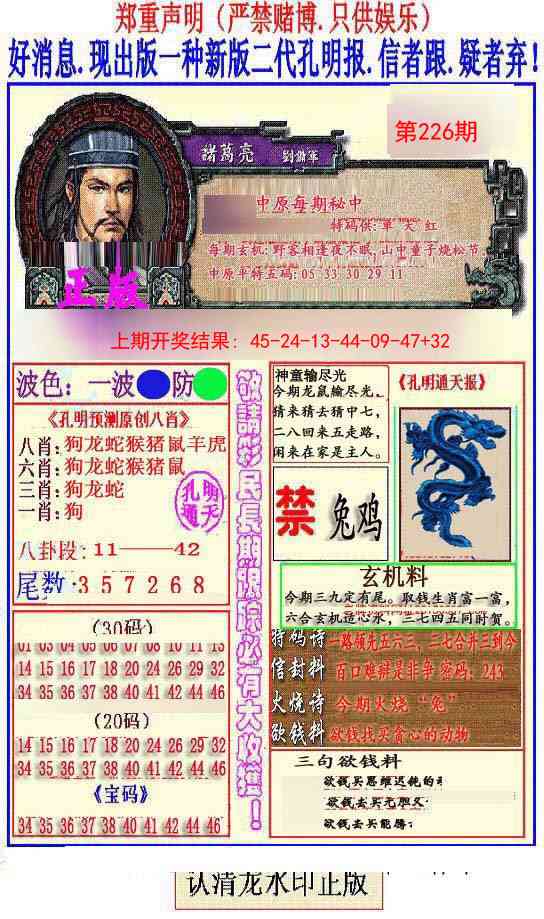 郑重声明（严禁赌博.只供娱乐）
好消息.现出版一种新版二代孔明报.信者跟.疑者弃！
第226期
諸葛亮 劉備軍
中原每期秘中
特码供:单 大 红
每期玄机:野客相逢夜不眠,山中童子烧松节.
中原平特五码:05 33 30 29 11
正版
上期开奖结果：45-24-13-44-09-47+32
波色：一波 防
《孔明预测原创八肖》
八肖:狗龙蛇猴猪鼠羊虎
六肖:狗龙蛇猴猪鼠
三肖:狗龙蛇
一肖:狗
孔明
通天
八卦段:11——42
尾数:357268
（30码）
01 03 04 05 06 07 08 10 11 13
14 15 16 17 18 20 24 26 29 32
34 35 36 37 38 40 41 42 44 46
（20码）
14 15 16 17 18 20 24 26 29 32
34 35 36 37 38 40 41 42 44 46
《宝码》
34 35 36 37 38 40 41 42 44 46
敬請彩民長期跟踪必有大收獲！
神童输尽光
今期龙鼠输尽光。
猜来猜去猜中七，
二八回来五走路，
闲来在家是主人。
《孔明通天报》
禁 兔鸡
玄机料
今期三九定有尾。取钱生肖富一富，
六合玄机造心水，三七四五同时贺。
特码诗 一路领先五六三，三七合并三到今
信封料 百口难辩是非争 密码：243
火烧诗 今期火烧“兔”
欲钱料 欲钱找买贪心的动物
三句欲钱料
欲钱买思维迟钝的
欲钱去买无胆义
欲钱去买能腾
认清龙水印正版